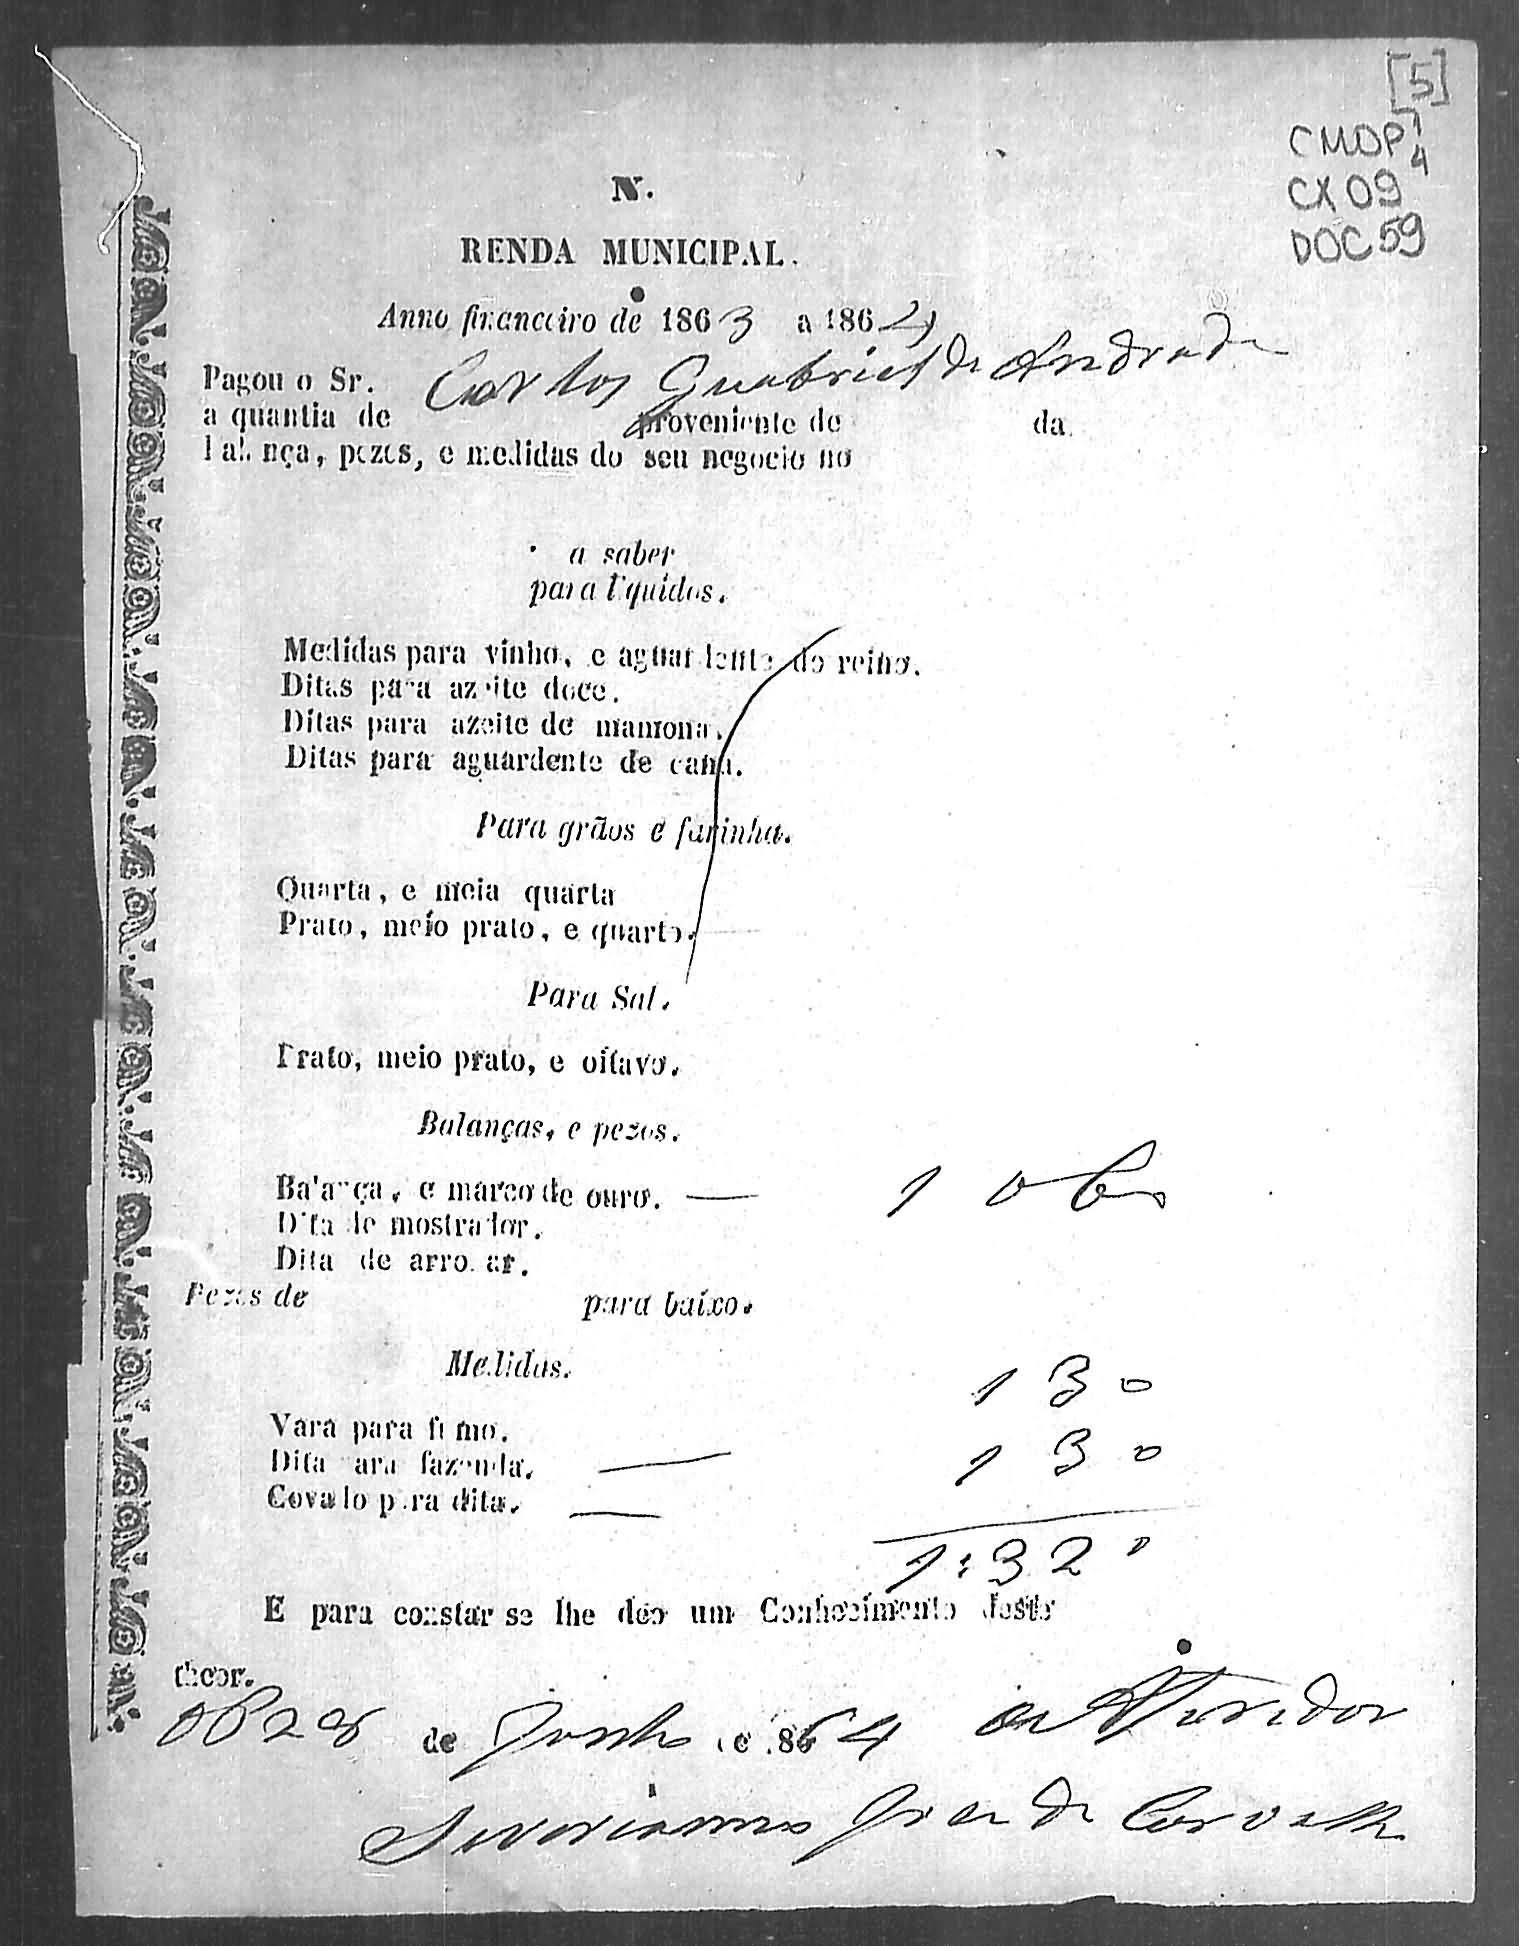 [5]
CMOP
CX 09
DOC 59
N.
RENDA MUNICIPAL.
Anno financeiro de 1863 a 1864
Pagou o Sr. Carlos Guabriel de Andrade
a quantia de proveniente de da
balança, pezes, e medidas do seu negocio no
a saber
para liquidos.
Medidas para vinho, e aguardente do reino.
Ditas para azeite doce.
Ditas para azeite de mamona.
Ditas para aguardente de cana.
Para grãos e farinha.
Quarta, e meia quarta
Prato, meio prato, e quarto.
Para Sal.
Prato, meio prato, e oitavo.
Balanças, e pezos.
Balança, e marco de ouro. — 1 060
Dita de mostrador.
Dita de arrobar.
Pezos de para baixo.
Medidas.
130
Vara para fumo.
Dita para fazenda. — 130
Covado para dita. —
1:320
E para constar se lhe deo um Conhecimento deste
theor.
28 de Junho de 1864 Afferidor
Severianno de Carvalho